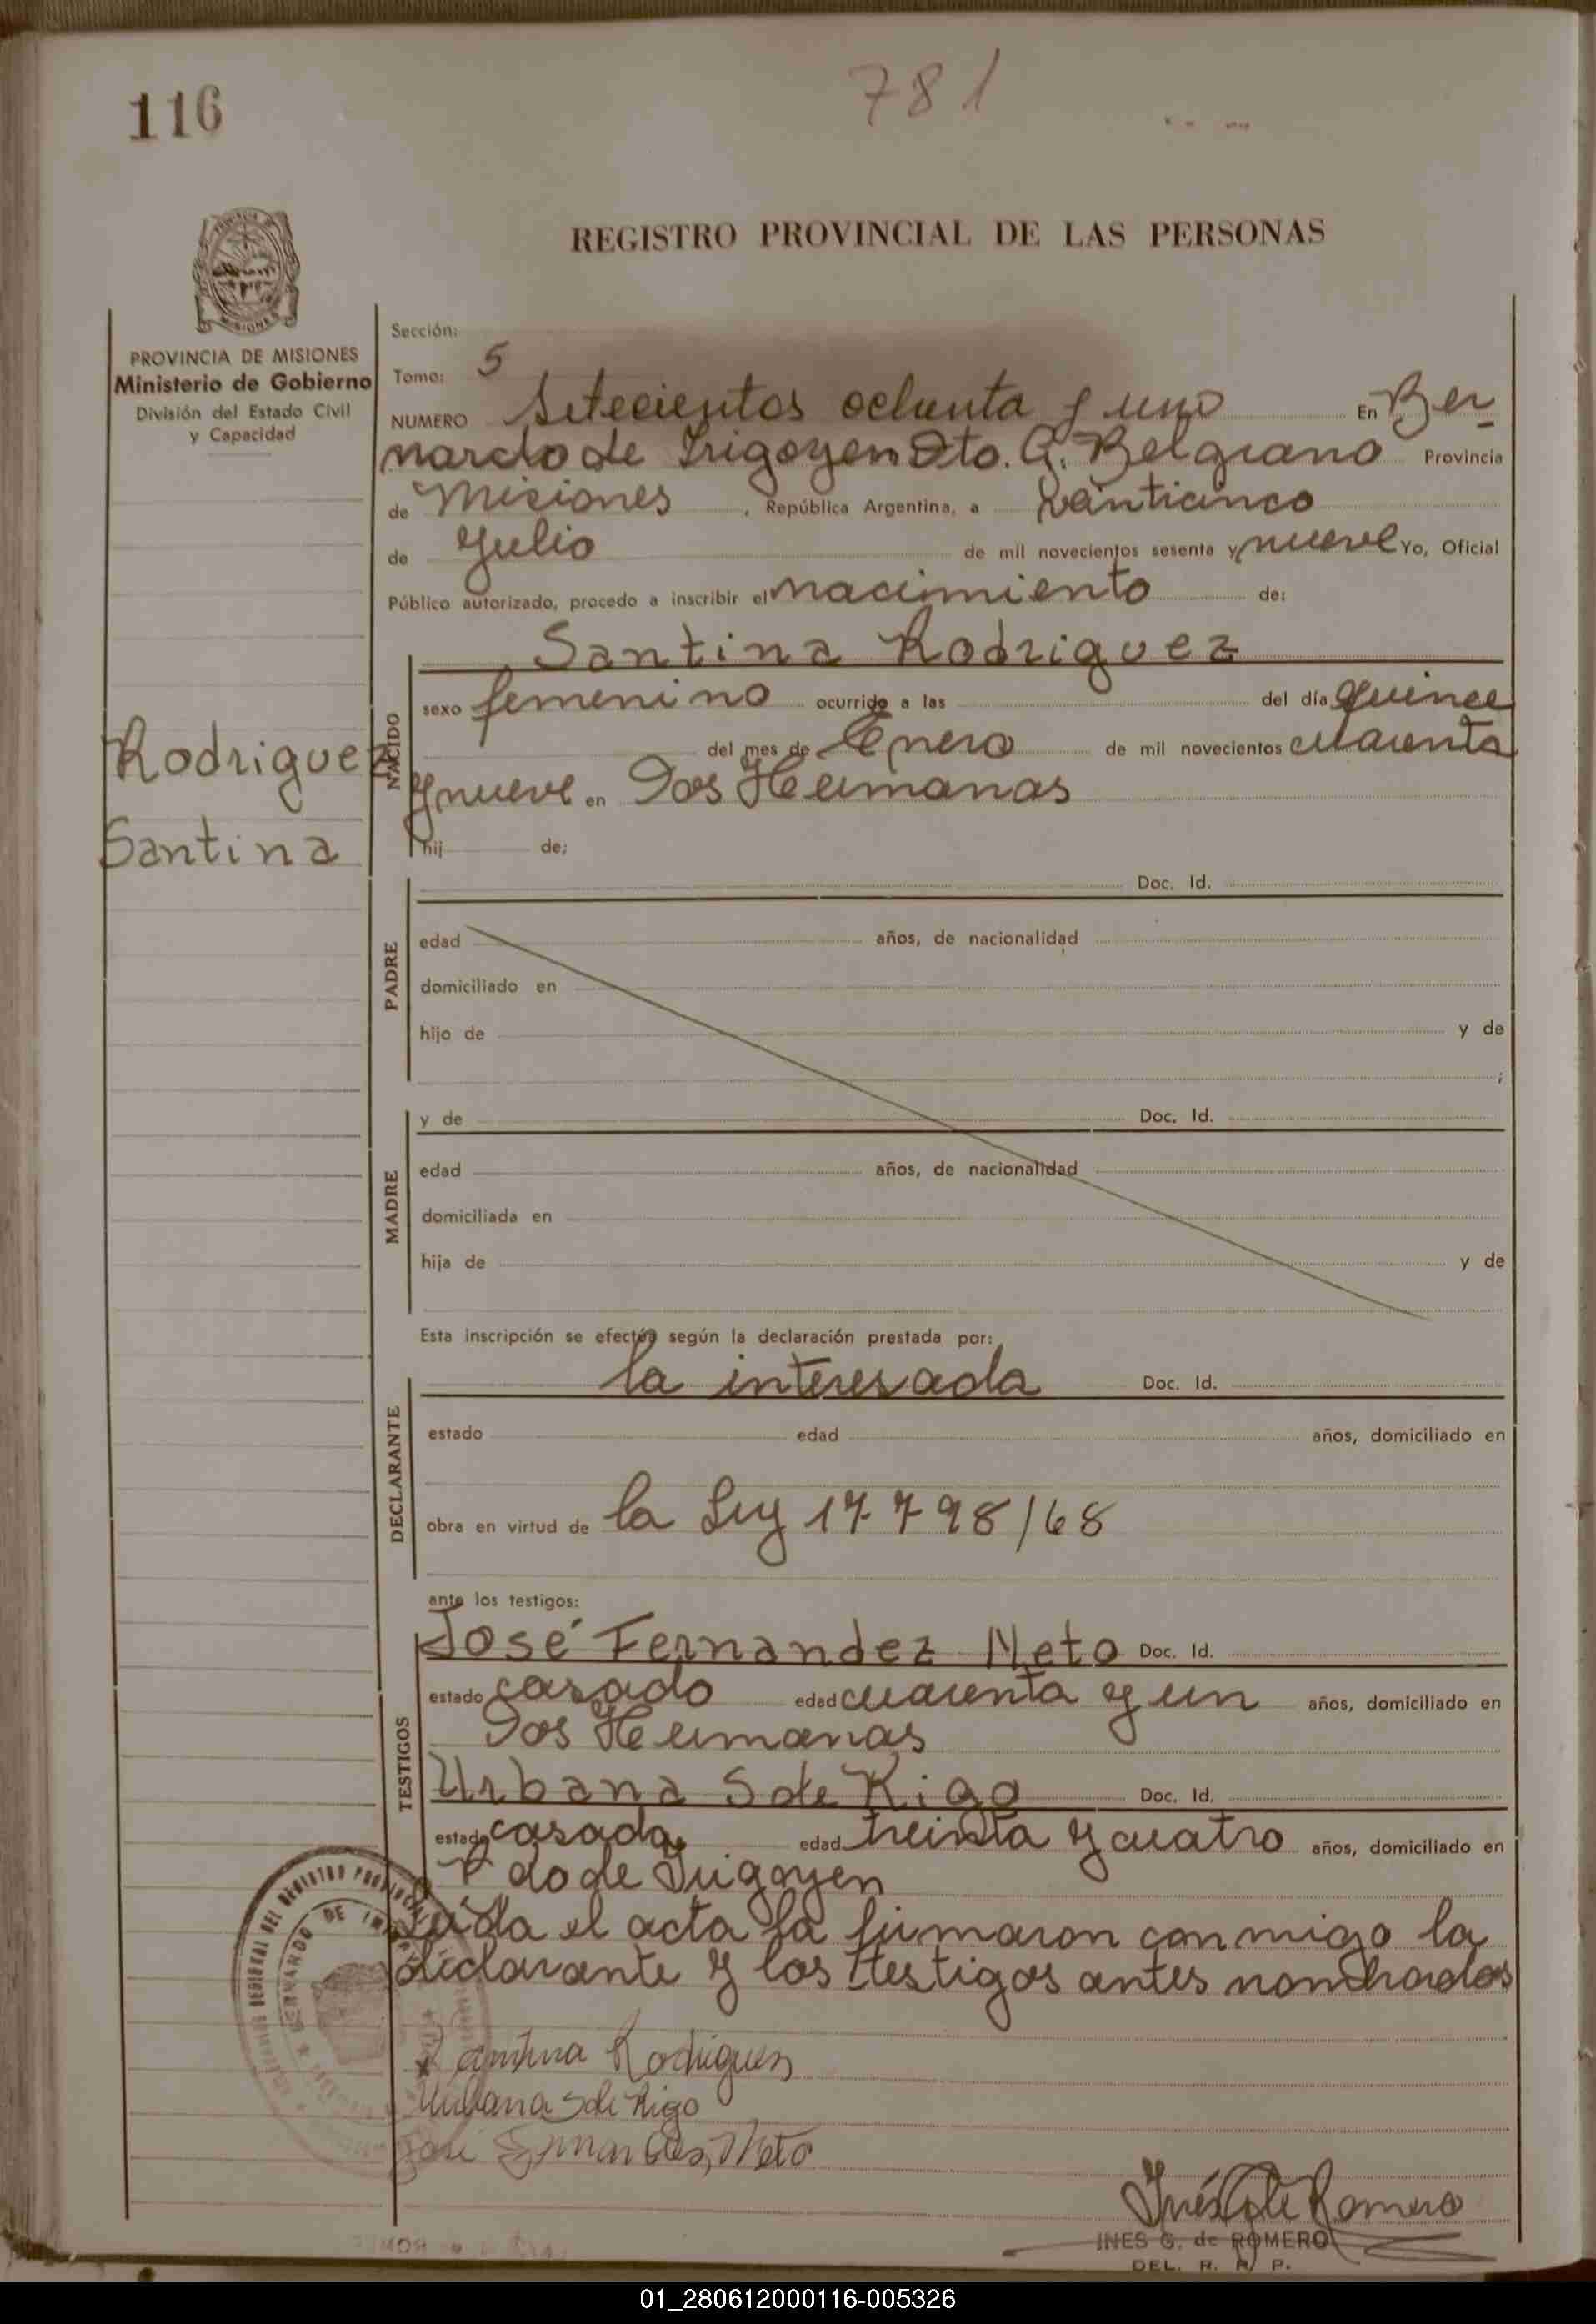 116
781
REGISTRO PROVINCIAL DE LAS PERSONAS
PROVINCIA DE MISIONES
Ministerio de Gobierno
División del Estado Civil
y Capacidad
Rodriguez
Santina
Sección:
Tomo: 5
NUMERO Setecientos ochenta y uno En Ber
nardo de Irigoyen Dto. G. Belgrano Provincia
de Misiones, República Argentina, a veinticinco
de Julio de mil novecientos sesenta y nueve Yo, Oficial
Público autorizado, procedo a inscribir el nacimiento de:
Santina Rodriguez
NACIDO
sexo femenino ocurrido a las del día quince
del mes de Enero de mil novecientos cuarenta
y nueve en Dos Hermanas
hij de;
PADRE
Doc. Id.
edad años, de nacionalidad
domiciliado en
hijo de y de
;
MADRE
y de Doc. Id.
edad años, de nacionalidad
domiciliada en
hija de y de
Esta inscripción se efectúa según la declaración prestada por:
DECLARANTE
la interesada Doc. Id.
estado edad años, domiciliado en
obra en virtud de la Ley 17798/68
ante los testigos:
TESTIGOS
José Fernandez Neto Doc. Id.
estado casado edad cuarenta y un años, domiciliado en
Dos Hermanas
Urbana S de Rigo Doc. Id.
estado casada edad treinta y cuatro años, domiciliado en
do de Irigoyen
Leida el acta la firmaron conmigo la
declarante y los testigos antes nombrados
Santina Rodriguez
Urbana S de Rigo
José Fernandez Neto
Inés G de Romero
INES G. de ROMERO
DEL. R. P. P.
01_280612000116-005326